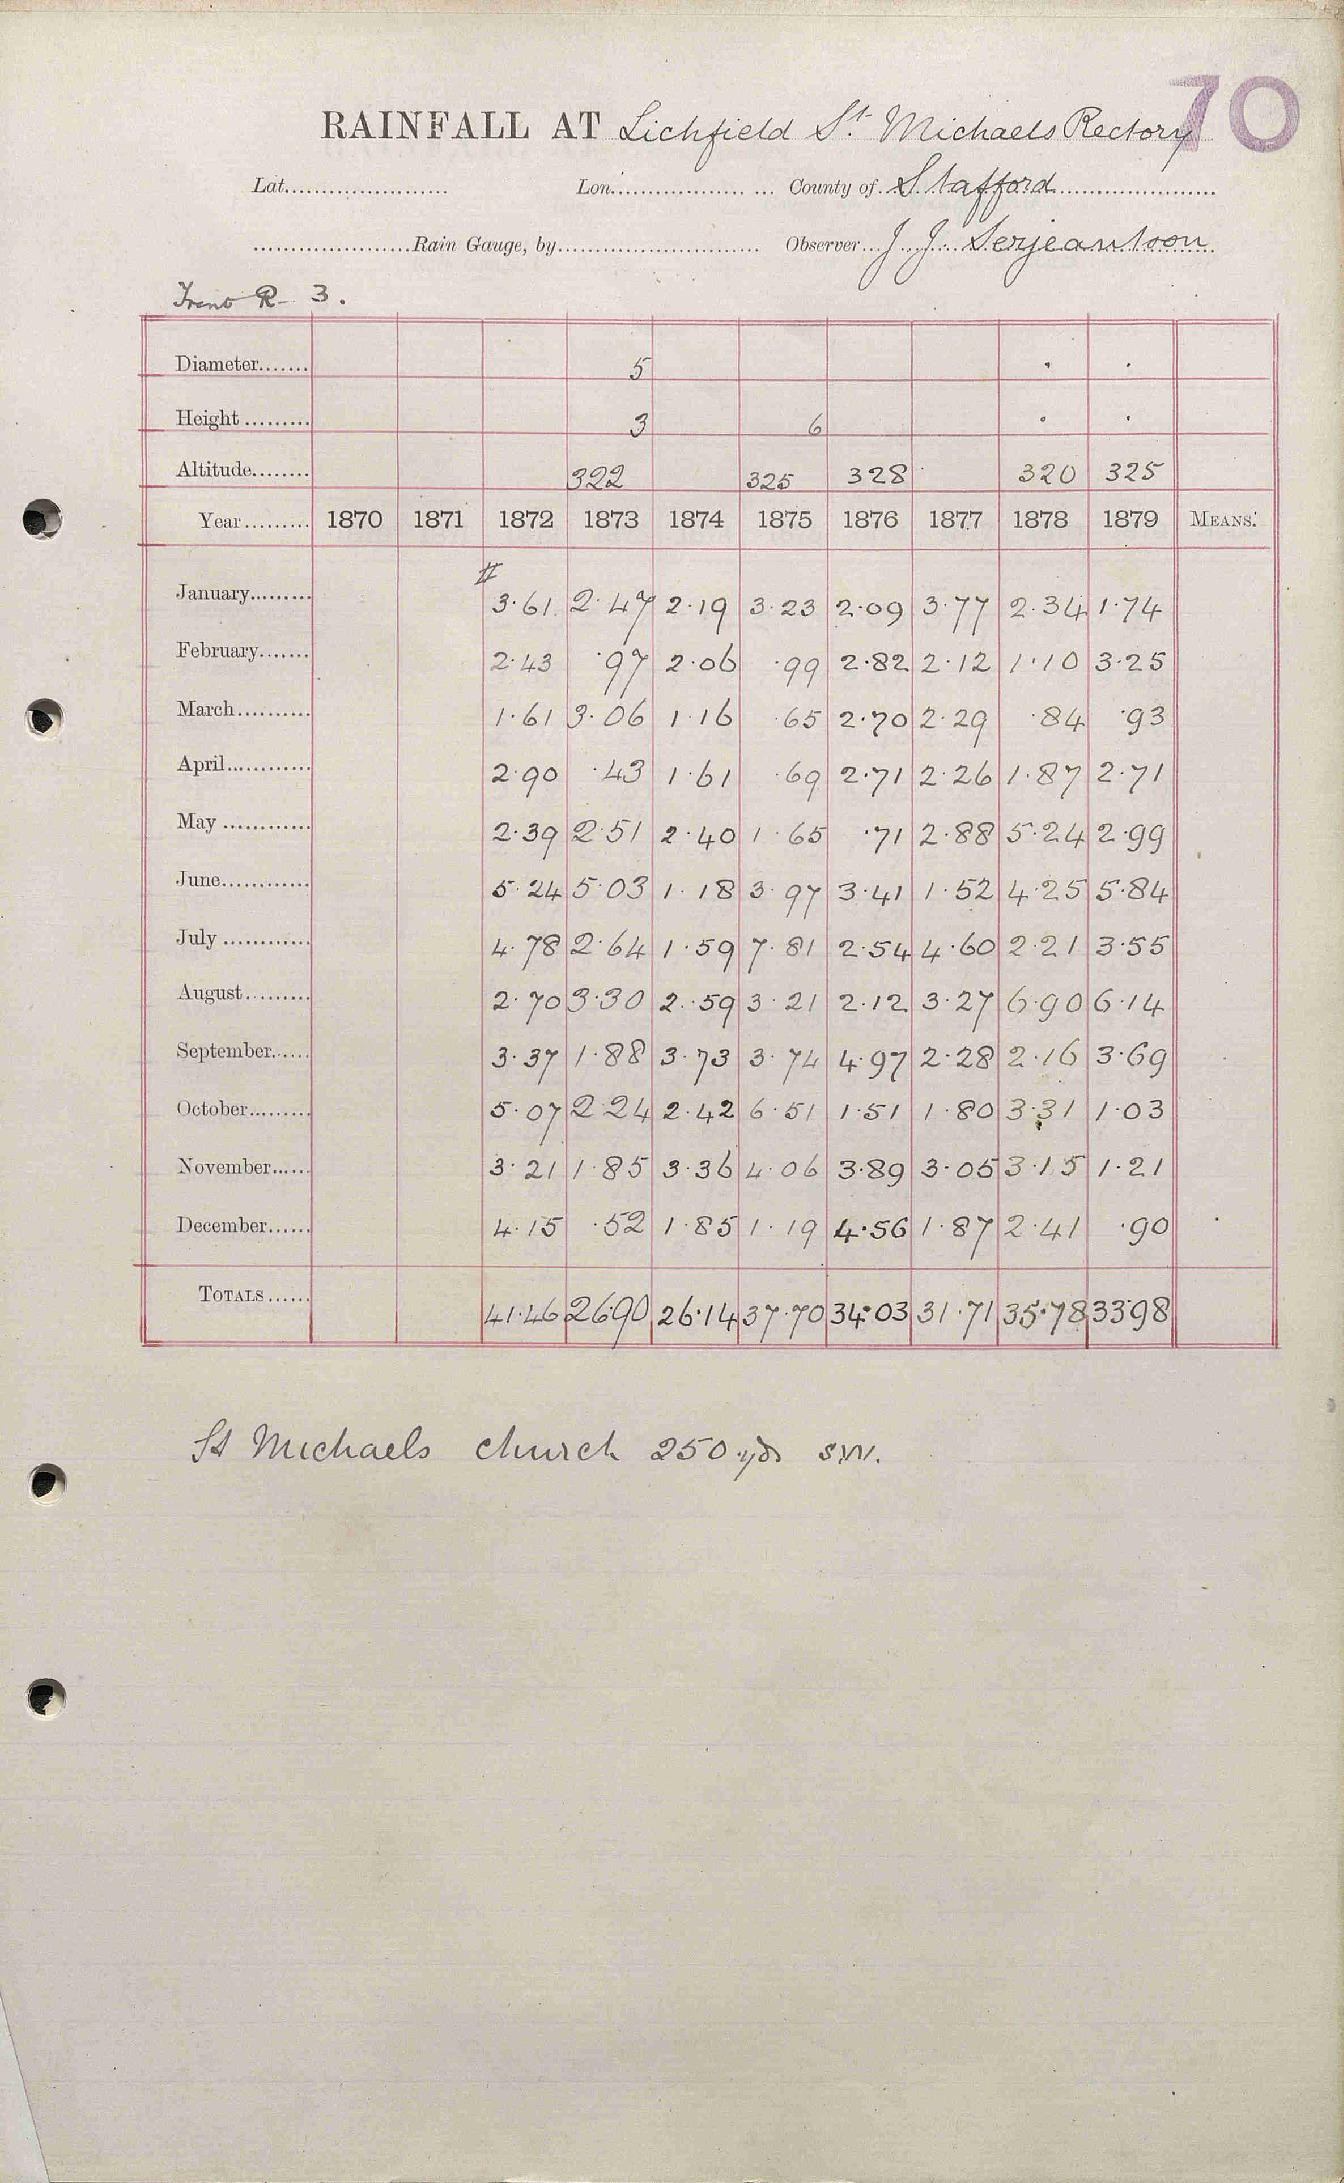 70
RAINFALL AT Lichfield St. Michaels Rectory
Lat...................... Lon................... ... County of Stafford
.....................Rain Gauge, by............................ Observer J J Serjeantson
Trent R 3.
Diameter....... 5 . .
Height ......... 3 6 . .
Altitude........ 322 325 328 320 325
Year......... 1870 1871 1872 1873 1874 1875 1876 1877 1878 1879 MEANS.
#
January......... 3.61 2.47 2.19 3.23 2.09 3.77 2.34 1.74
February....... 2.43 .97 2.06 .99 2.82 2.12 1.10 3.25
March.......... 1.61 3.06 1.16 .65 2.70 2.29 .84 .93
April............ 2.90 .43 1.61 .69 2.71 2.26 1.87 2.71
May ............ 2.39 2.51 2.40 1.65 .71 2.88 5.24 2.99
June............ 5.24 5.03 1.18 3.97 3.41 1.52 4.25 5.84
July ............ 4.78 2.64 1.59 7.81 2.54 4.60 2.21 3.55
August......... 2.70 3.30 2.59 3.21 2.12 3.27 6.90 6.14
September...... 3.37 1.88 3.73 3.74 4.97 2.28 2.16 3.69
October......... 5.07 2.24 2.42 6.51 1.51 1.80 3.31 1.03
November...... 3.21 1.85 3.36 4.06 3.89 3.05 3.15 1.21
December...... 4.15 .52 1.85 1.19 4.56 1.87 2.41 .90
TOTALS...... 41.46 26.90 26.14 37.70 34.03 31.71 35.78 33.98
St Michaels church 250 yds SW.